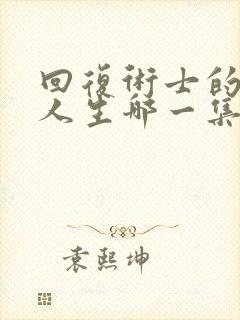 回復術士的
人生哪一集
袁熙坤